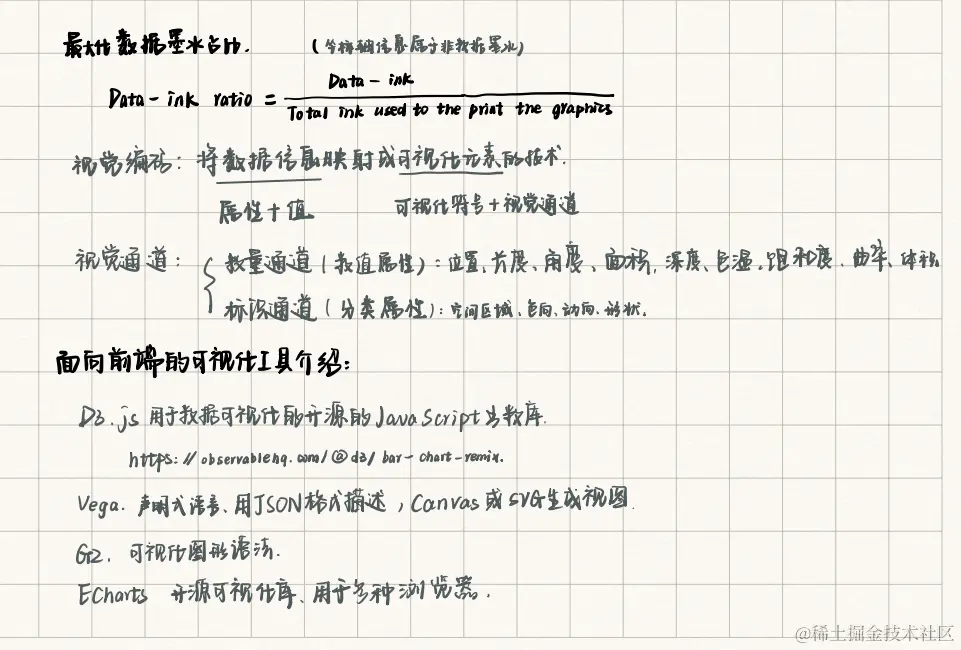 最大化数据墨水占比.
(坐标轴信息属于非数据墨水)
Data-ink ratio = Data-ink
Total ink used to the print the graphics
视觉编码: 将数据信息映射成可视化元素的技术.
属性+值 可视化符号+视觉通道
视觉通道:
数量通道(数值属性): 位置、长度、角度、面积, 深度、色温、饱和度、曲率、体积
标识通道(分类属性): 空间区域、色向、动向、形状.
面向前端的可视化工具介绍:
D3.js 用于数据可视化的开源的JavaScript函数库.
https://observablehq.com/@d3/bar-chart-remix.
Vega. 声明式语言、用JSON格式描述, Canvas或SVG生成视图.
G2. 可视化图形语法.
ECharts 开源可视化库、用于多种浏览器.
@稀土掘金技术社区